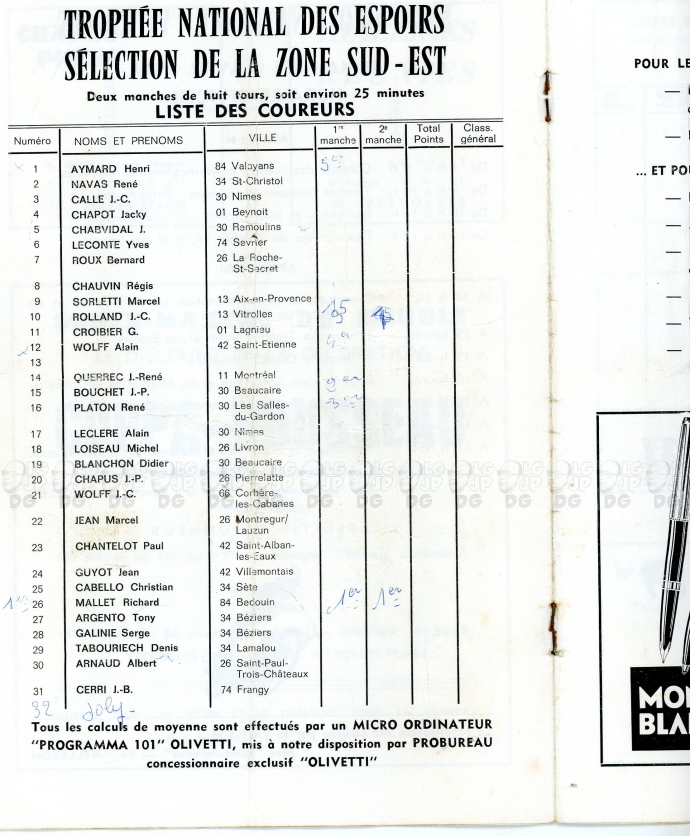 TROPHÉE NATIONAL DES ESPOIRS
SÉLECTION DE LA ZONE SUD-EST
Deux manches de huit tours, soit environ 25 minutes
LISTE DES COUREURS
Numéro NOMS ET PRENOMS VILLE 1re manche 2e manche Total Points Class. général
1 AYMARD Henri 84 Valayans
2 NAVAS René 34 St-Christol
3 CALLE J.-C. 30 Nimes
4 CHAPOT Jacky 01 Beynoit
5 CHABVIDAL J. 30 Remoulins
6 LECONTE Yves 74 Sevrier
7 ROUX Bernard 26 La Roche-
St-Secret
8 CHAUVIN Régis
9 SORLETTI Marcel 13 Aix-en-Provence
10 ROLLAND J.-C. 13 Vitrolles
11 CROIBIER G. 01 Lagnieu
12 WOLFF Alain 42 Saint-Etienne
13
14 QUERREC J.-René 11 Montréal
15 BOUCHET J.-P. 30 Beaucaire
16 PLATON René 30 Les Salles-
du-Gardon
17 LECLERE Alain 30 Nimes
18 LOISEAU Michel 26 Livron
19 BLANCHON Didier 30 Beaucaire
20 CHAPUS J.-P. 26 Pierrelatte
21 WOLFF J.-C. 66 Corbère-
les-Cabanes
22 JEAN Marcel 26 Montregur/
Lauzun
23 CHANTELOT Paul 42 Saint-Alban-
les-Eaux
24 GUYOT Jean 42 Villemontais
25 CABELLO Christian 34 Sète
1er 26 MALLET Richard 84 Bedouin 1er 1er
27 ARGENTO Tony 34 Béziers
28 GALINIE Serge 34 Béziers
29 TABOURIECH Denis 34 Lamalou
30 ARNAUD Albert 26 Saint-Paul-
Trois-Châteaux
31 CERRI J.-B. 74 Frangy
32 Joly-
Tous les calculs de moyenne sont effectués par un MICRO ORDINATEUR
"PROGRAMMA 101" OLIVETTI, mis à notre disposition par PROBUREAU
concessionnaire exclusif "OLIVETTI"
POUR LE
... ET POU
MO
BLA